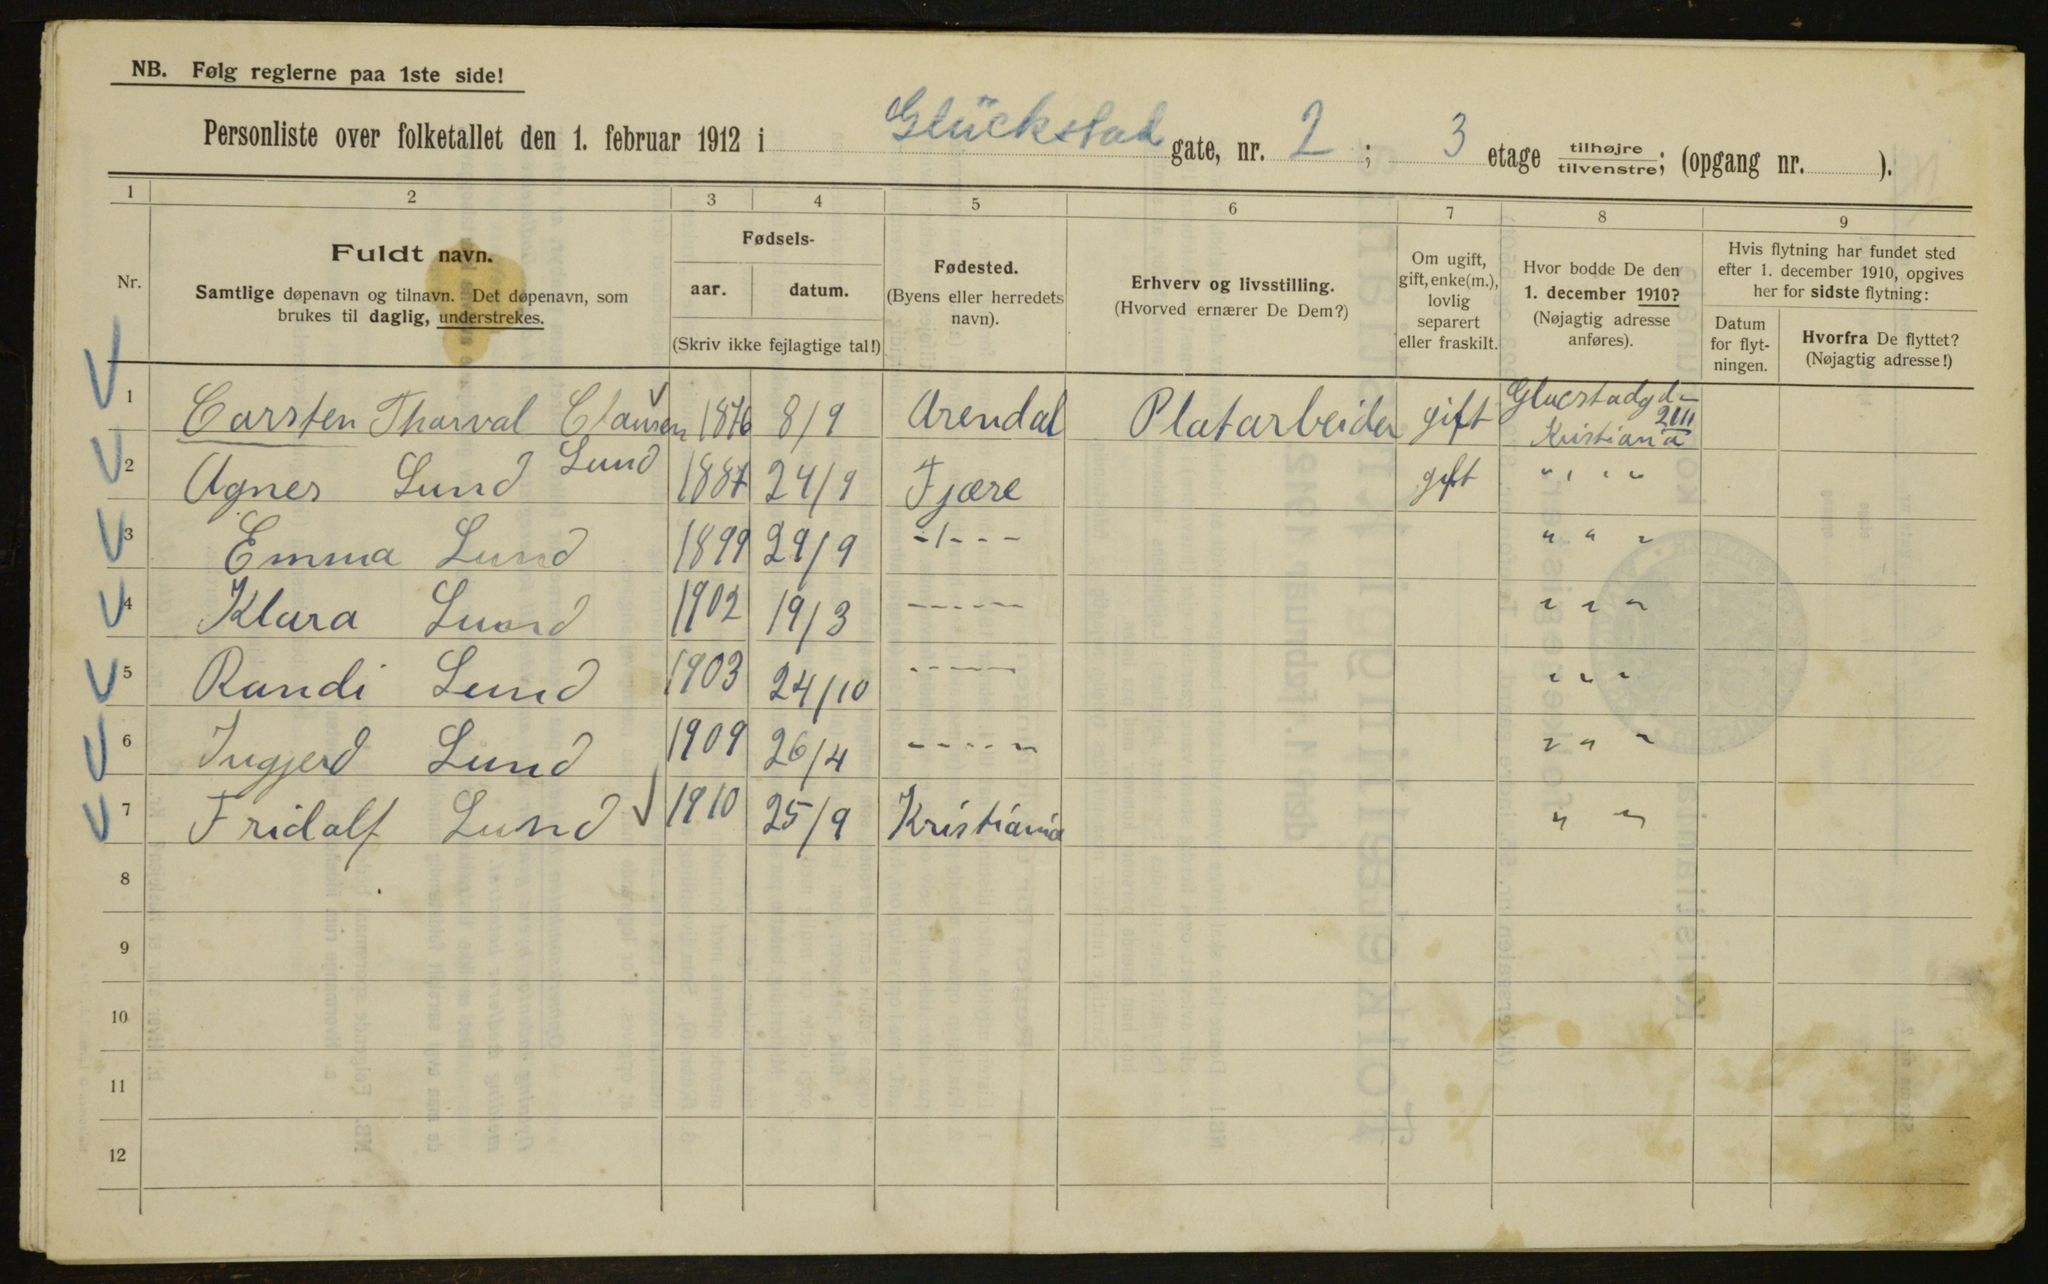 NB. Følg reglerne paa 1ste side!
Personliste over folketallet den 1. februar 1912 i Glückstad gate, nr. 2 ; 3 etage tilhøjre/tilvenstre; (opgang nr. ).
1 2 3 4 5 6 7 8 9
Nr.
Fuldt navn.
Samtlige døpenavn og tilnavn. Det døpenavn, som
brukes til daglig, understrekes.
Fødsels-
aar. datum.
(Skriv ikke fejlagtige tal!)
Fødested.
(Byens eller herredets
navn).
Erhverv og livsstilling.
(Hvorved ernærer De Dem?)
Om ugift,
gift, enke(m.),
lovlig
separert
eller fraskilt.
Hvor bodde De den
1. december 1910?
(Nøjagtig adresse
anføres).
Hvis flytning har fundet sted
efter 1. december 1910, opgives
her for sidste flytning:
Datum
for flyt-
ningen.
Hvorfra De flyttet?
(Nøjagtig adresse!)
1 Carsten Tharval Clausen Lund 1876 8/9 Arendal Platarbeider gift Glucstadgd- 2III Kristiania
2 Agnes Lund 24/9 Fjære gift " " " "
3 Emma Lund 1899 29/9 -/- - - " " "
4 Klara Lund 1902 19/3 ----- " " "
5 Randi Lund 1903 24/10 ----- " " "
6 Ingjerd Lund 1909 26/4 ----- " " "
7 Fridolf Lund 1910 25/9 Kristiania " "
8
9
10
11
12